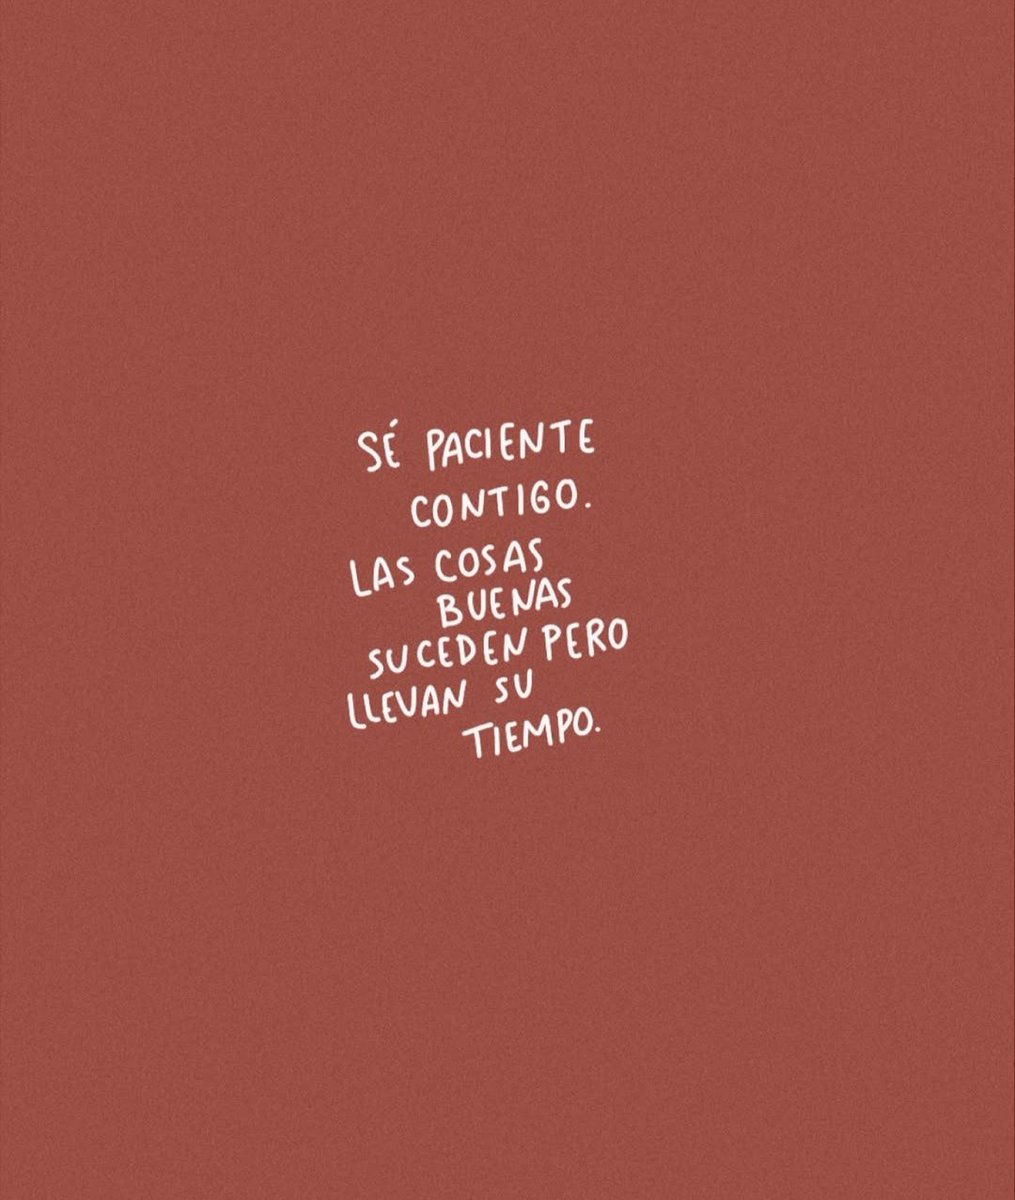 SÉ PACIENTE
CONTIGO.
LAS COSAS
BUENAS
SUCEDEN PERO
LLEVAN SU
TIEMPO.